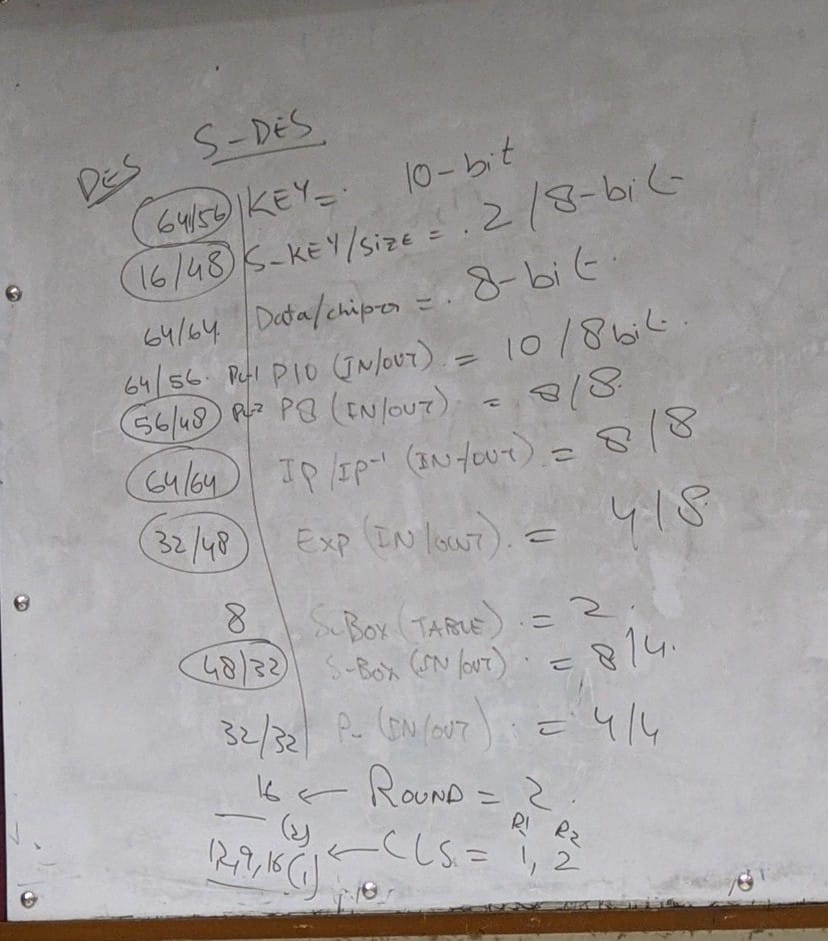 DES S-DES
64/56 KEY = 10-bit
16/48 S-KEY/SIZE = 2/8-bit
64/64 Data/chiper = 8-bit
64/56 PC-1 P10 (IN/OUT) = 10/8bit
56/48 PC-2 P8 (IN/OUT) = 8/8
64/64 IP/IP⁻¹ (IN/OUT) = 8/8
32/48 EXP (IN/OUT) = 4/8
8 S-Box (TABLE) = 2
48/32 S-Box (IN/OUT) = 8/4
32/32 P- (IN/OUT) = 4/4
16 ← ROUND = 2
(2) R1 R2
1,2,9,16 (1) ← CLS = 1, 2